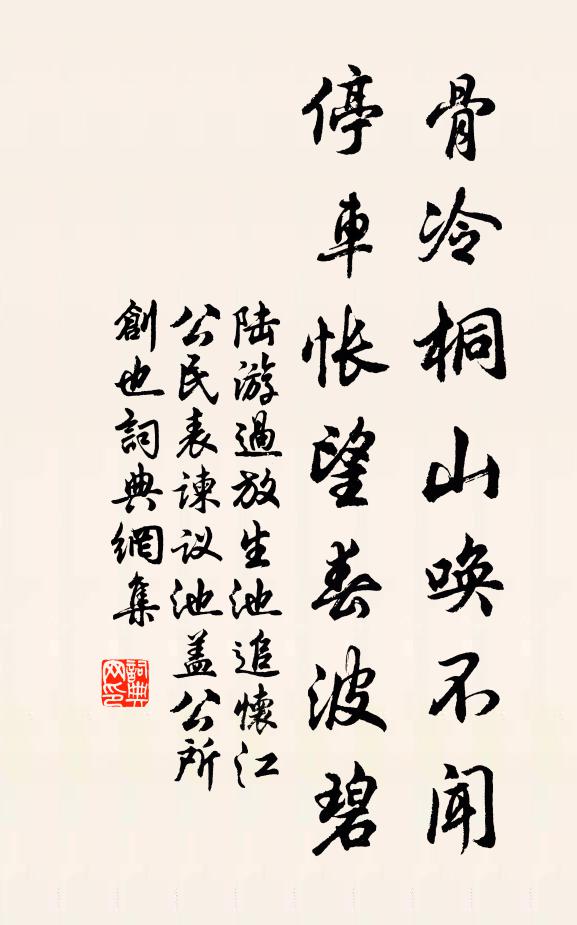 骨冷桐山唤不闻
停車怅望春波碧
陆游過放生池追懷江
公民表諫议池盖公所
創也詞典網集
詞典网印